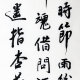 時節雨
魂借問
遙指杏